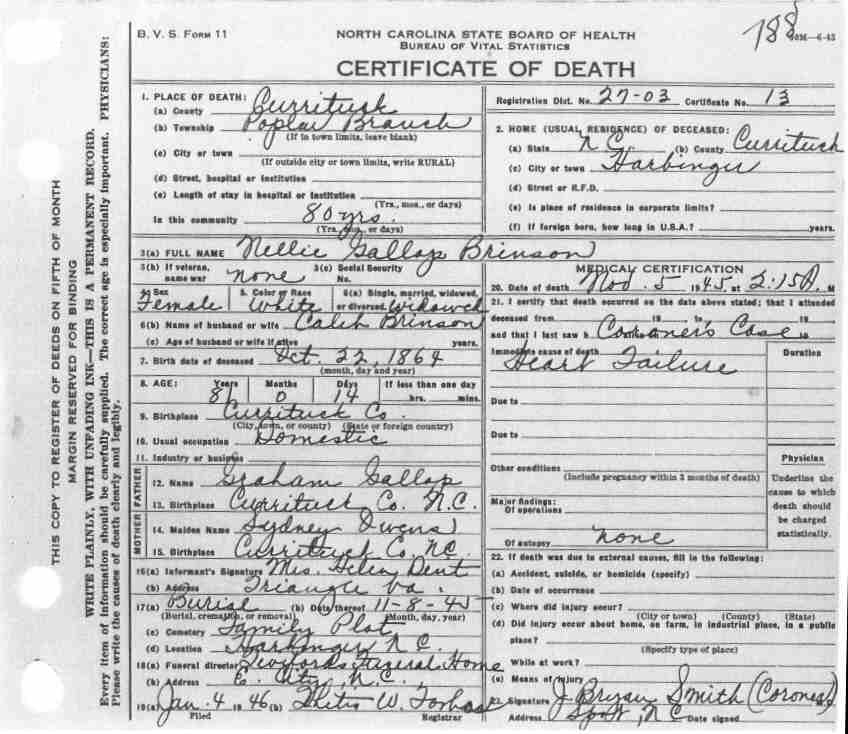 B. V. S. FORM 11
NORTH CAROLINA STATE BOARD OF HEALTH
BUREAU OF VITAL STATISTICS
CERTIFICATE OF DEATH
188
THIS COPY TO REGISTER OF DEEDS ON FIFTH OF MONTH
MARGIN RESERVED FOR BINDING
WRITE PLAINLY, WITH UNFADING INK—THIS IS A PERMANENT RECORD.
Every item of information should be carefully supplied. The correct age is especially important. PHYSICIANS:
Please write the causes of death clearly and legibly.
1. PLACE OF DEATH:
(a) County Currituck
(b) Township Poplar Branch
(If in town limits, leave blank)
(c) City or town
(If outside city or town limits, write RURAL)
(d) Street, hospital or institution
(e) Length of stay in hospital or institution
(Yrs., mos., or days)
In this community 80 yrs.
(Yrs., mos., or days)
Registration Dist. No. 27-03 Certificate No. 13
2. HOME (USUAL RESIDENCE) OF DECEASED:
(a) State N.C. (b) County Currituck
(c) City or town Harbinger
(d) Street or R.F.D.
(e) Is place of residence in corporate limits?
(f) If foreign born, how long in U.S.A.? years.
3(a) FULL NAME Nellie Gallop Brinson
3(b) If veteran, name war none 3(c) Social Security No.
4. Sex Female 5. Color or Race White 6(a) Single, married, widowed, or divorced. Widowed
6(b) Name of husband or wife Caleb Brinson
(c) Age of husband or wife if alive years.
7. Birth date of deceased Oct. 22, 1864
(month, day and year)
8. AGE: Years Months Days If less than one day
81 0 14 hrs. mins.
9. Birthplace Currituck Co.
(City, town, or county) (State or foreign country)
10. Usual occupation Domestic
11. Industry or business
FATHER
12. Name Graham Gallop
13. Birthplace Currituck Co. N.C.
MOTHER
14. Maiden Name Sydney Owens
15. Birthplace Currituck Co. N.C.
16(a) Informant's Signature Mrs. Helen Dent
(b) Address Triangle Va.
17(a) Burial (b) Date thereof 11-8-45
(Burial, cremation, or removal) (Month, day, year)
(c) Cemetery Family Plot
(d) Location Harbinger N.C.
18(a) Funeral director Funeral Home
(b) Address E. City, N.C.
19(a) Jan. 4 1946 (b) W.
Filed Registrar
MEDICAL CERTIFICATION
20. Date of death Nov. 5 1945 at 2:15 A. M
21. I certify that death occurred on the date above stated; that I attended
deceased from 19 to 19
and that I last saw h Coroner's Case 19
Immediate cause of death Duration
Heart Failure
Due to
Due to
Other conditions
(Include pregnancy within 3 months of death)
Major findings:
Of operations
Of autopsy none
Physician
Underline the
cause to which
death should
be charged
statistically.
22. If death was due to external causes, fill in the following:
(a) Accident, suicide, or homicide (specify)
(b) Date of occurrence
(c) Where did injury occur?
(City or town) (County) (State)
(d) Did injury occur about home, on farm, in industrial place, in a public
place?
(Specify type of place)
While at work?
(e) Means of injury
23. Signature J. Bryan Smith (Coroner)
Address Spot, N C Date signed